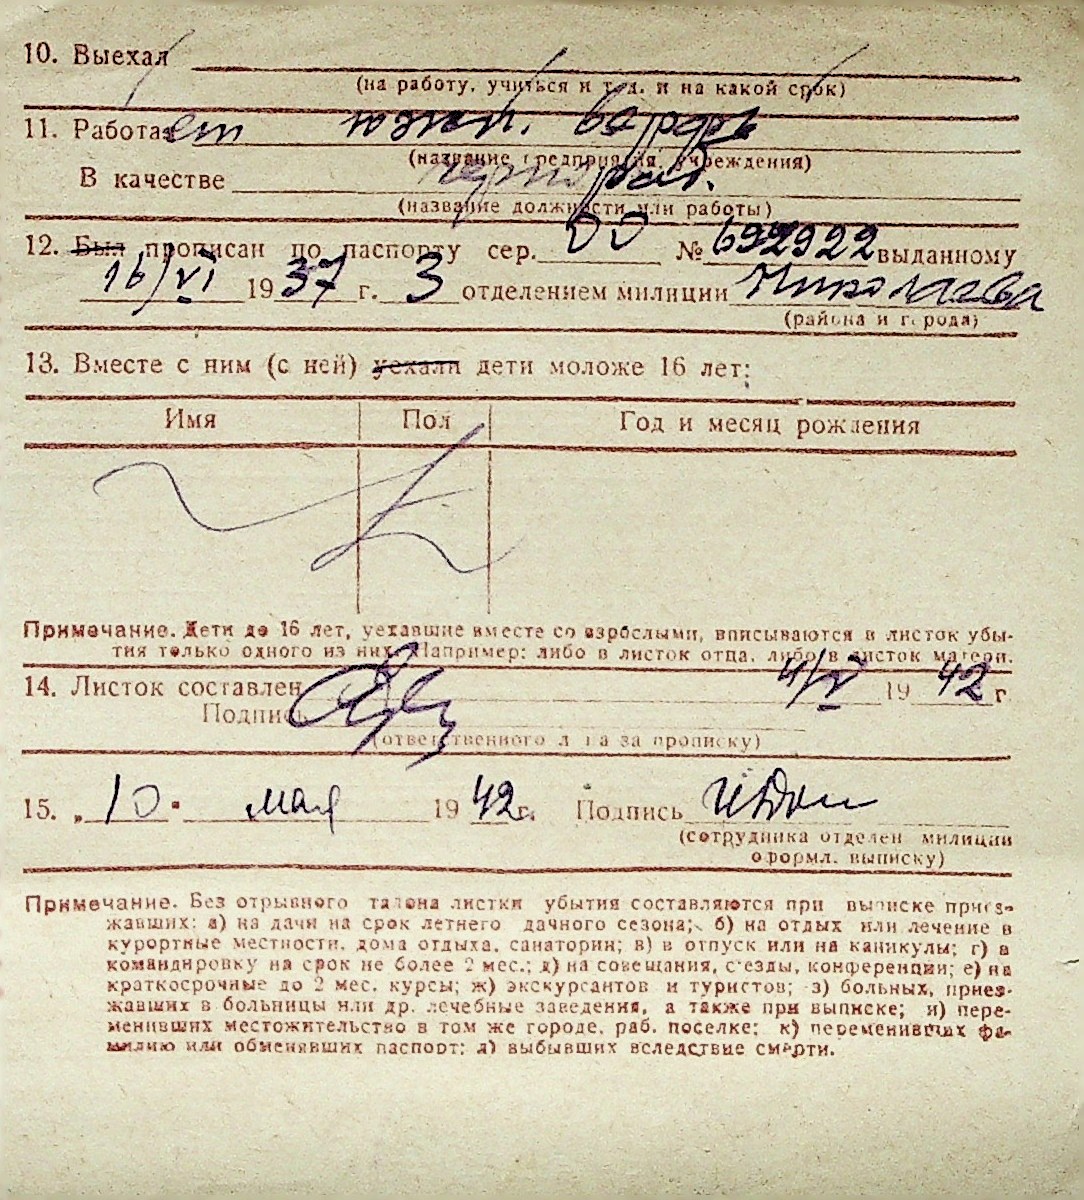 10. Выехал
(на работу, учиться и т. д. и на какой срок)
11. Работает южн. верфь
(название предприятия, учреждения)
В качестве чернораб.
(название должности или работы)
12. Был прописан по паспорту сер. № 692922 выданному
16/VI 1937 г. 3 отделением милиции Николаева
(района и города)
13. Вместе с ним (с ней) уехали дети моложе 16 лет:
Имя Пол Год и месяц рождения
Примечание. Дети до 16 лет, уехавшие вместе со взрослыми, вписываются в листок убы-
тия только одного из них. Например: либо в листок отца, либо в листок матери.
14. Листок составлен 4/V 1942 г.
Подпись
(ответственного лица за прописку)
15. „10" мая 1942 г. Подпись
(сотрудника отделен. милиции
оформл. выписку)
Примечание. Без отрывного талона листки убытия составляются при выписке приез-
жавших: а) на дачи на срок летнего дачного сезона; б) на отдых или лечение в
курортные местности, дома отдыха, санатории; в) в отпуск или на каникулы; г) в
командировку на срок не более 2 мес.; д) на совещания, съезды, конференции; е) на
краткосрочные до 2 мес. курсы; ж) экскурсантов и туристов; з) больных, приез-
жавших в больницы или др. лечебные заведения, а также при выписке; и) пере-
менивших местожительство в том же городе, раб. поселке; к) переменивших фа-
милию или обменявших паспорт; л) выбывших вследствие смерти.